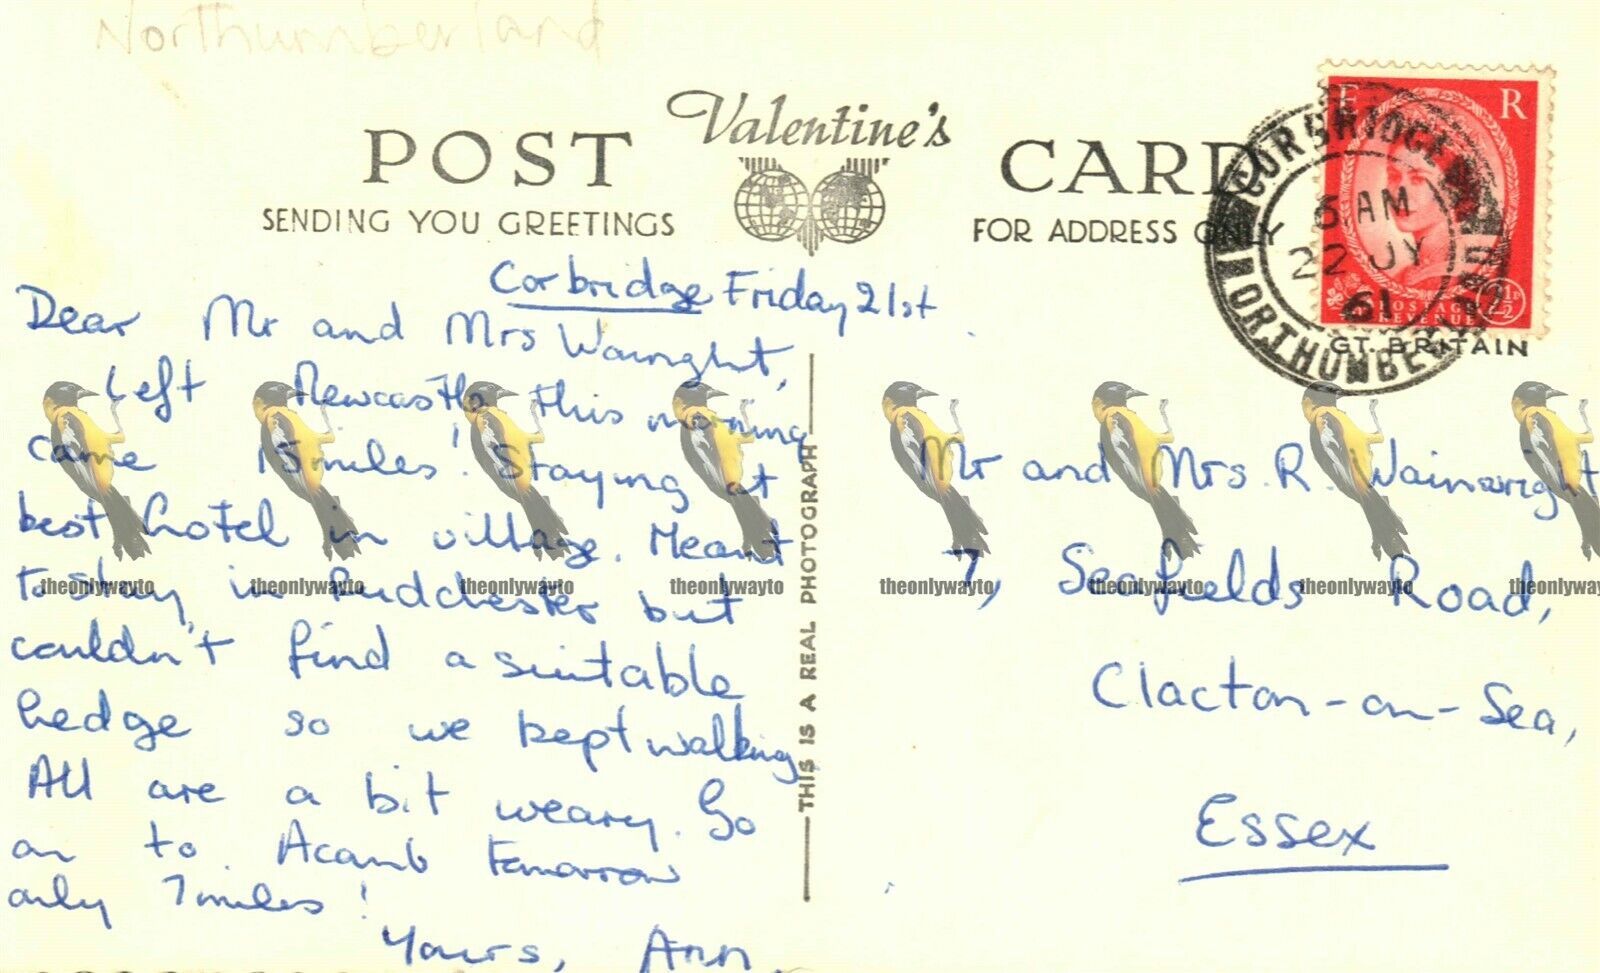 Northumberland
Valentine's
POST CARD
SENDING YOU GREETINGS
FOR ADDRESS ONLY
E R
POSTAGE REVENUE
2½D
CORBRIDGE
5 AM
22 JY
61
NORTHUMBERLAND
GT. BRITAIN
Corbridge Friday 21st.
Dear Mr and Mrs Wainright,
Left Newcastle this morning
came 15 miles! Staying at
best hotel in village. Meant
to stay in Rudchester but
couldn't find a suitable
hedge so we kept walking
All are a bit weary. Go
on to Acomb tomorrow
only 7 miles!
Yours, Ann.
THIS IS A REAL PHOTOGRAPH
Mr and Mrs. R. Wainwright
7, Seafields Road,
Clacton-on-Sea,
Essex
theonlywayto theonlywayto theonlywayto theonlywayto theonlywayto theonlywayto theonlywayto theonlywayto